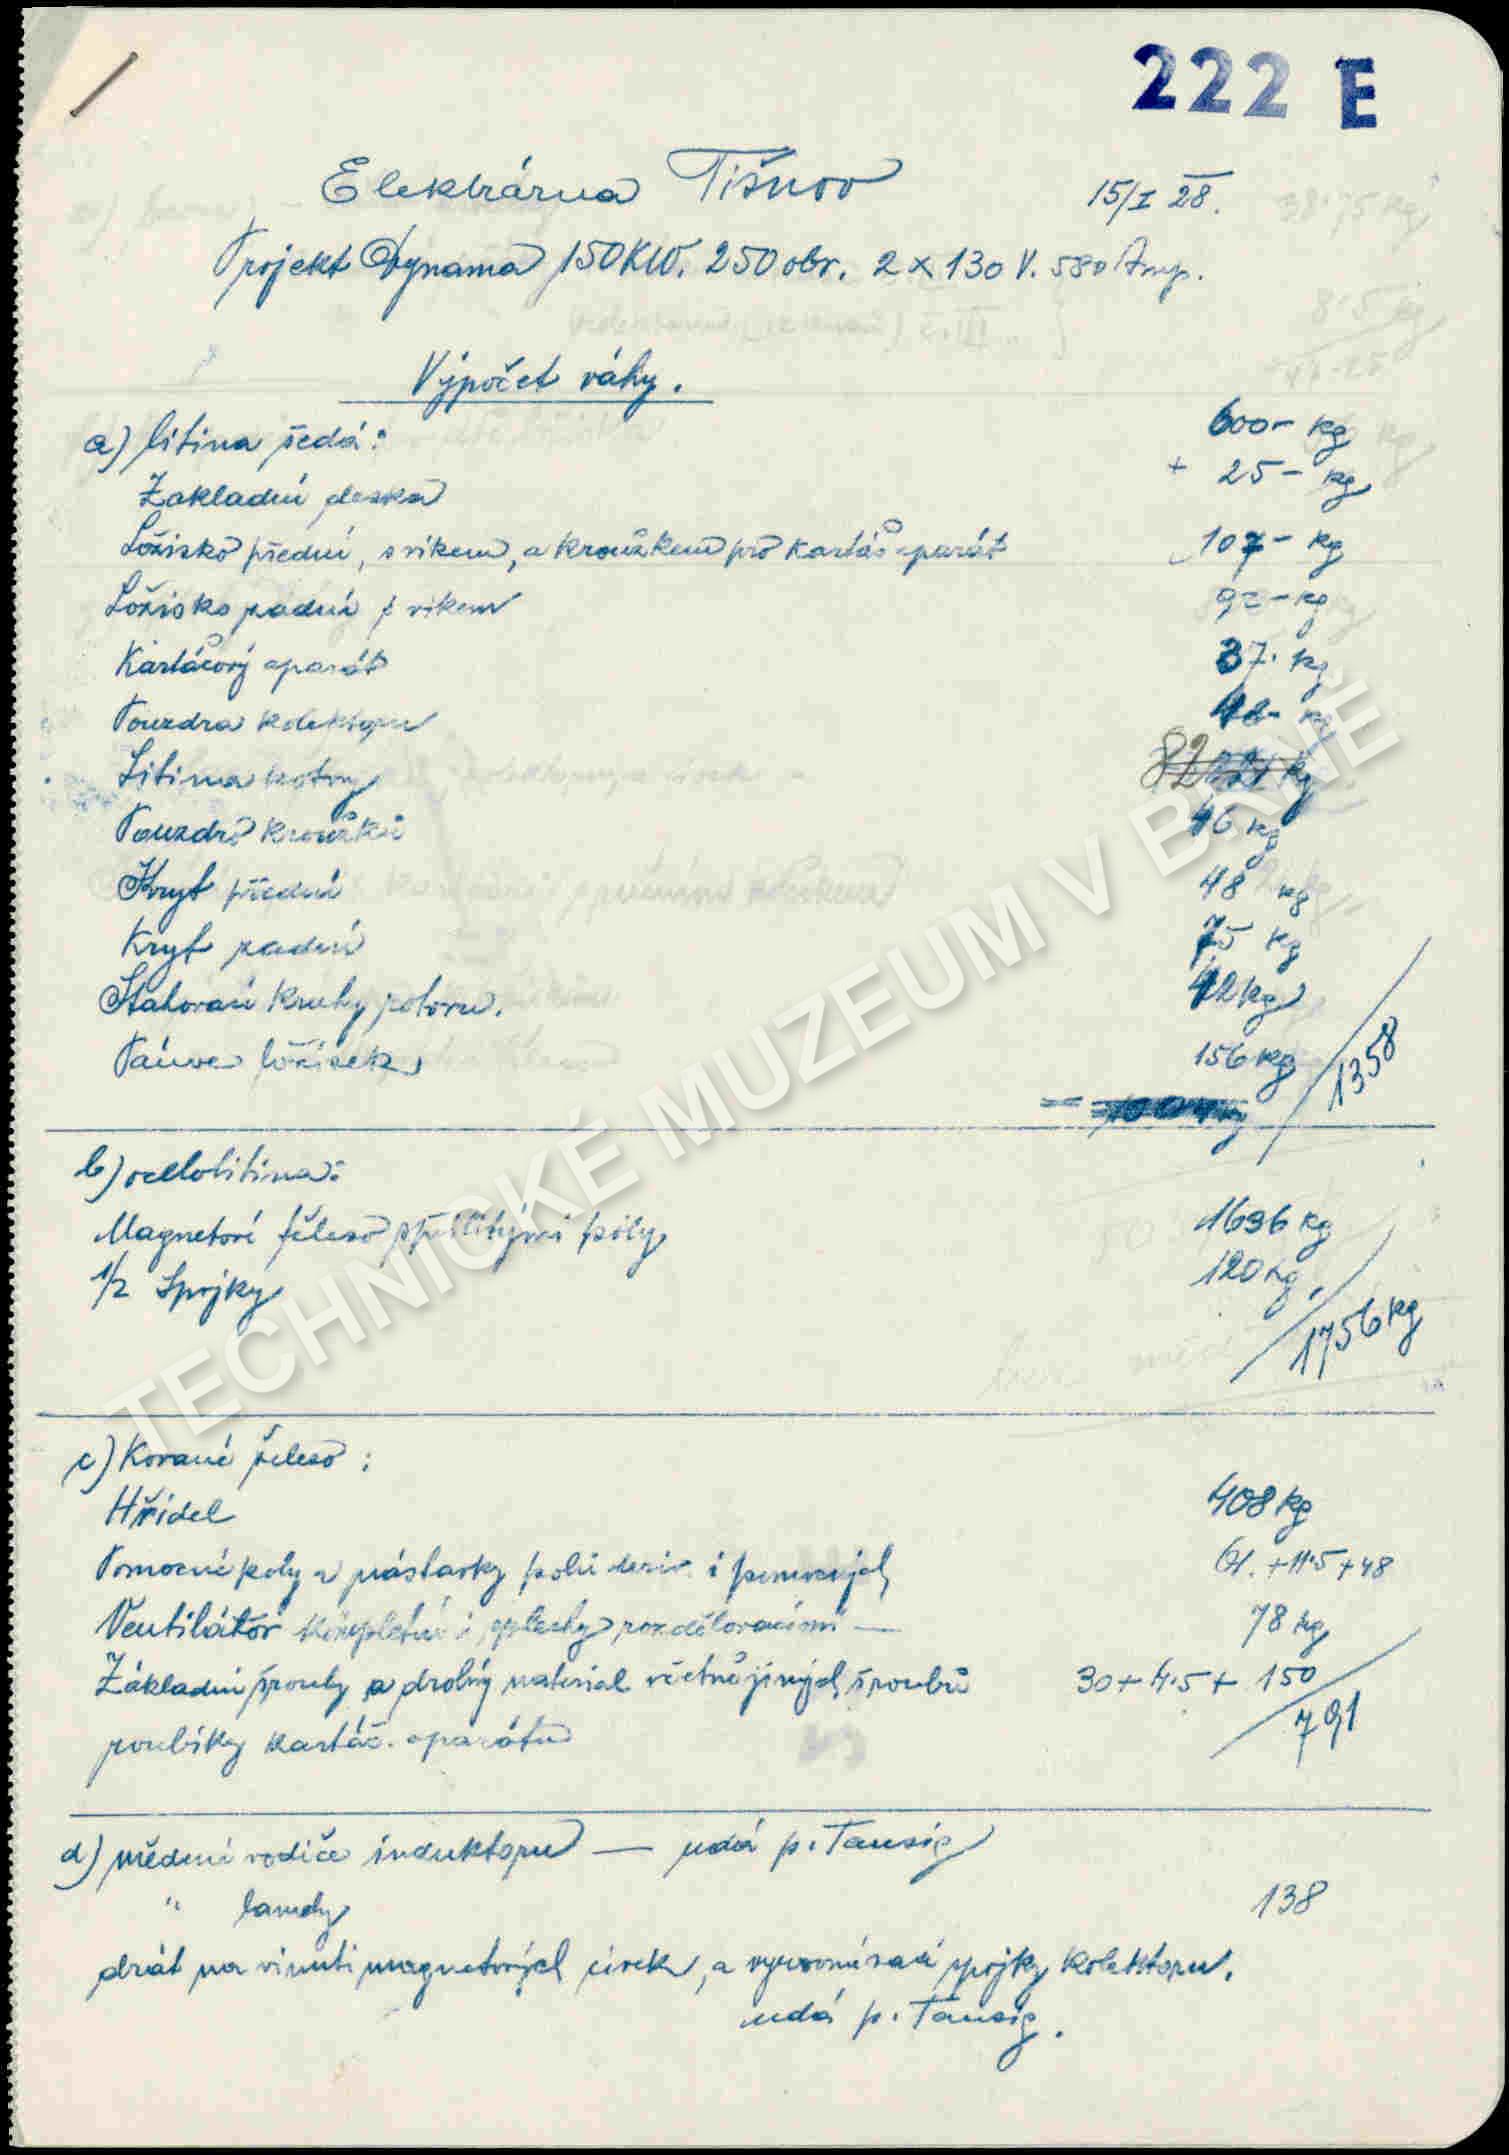 222 E
Elektrárna Tišnov 15/I 28.
Projekt Dynama 150 KW. 250 obr. 2 x 130 V. 580 Amp.
Výpočet váhy.
a) litina šedá: 600- kg
Zakladní deska + 25- kg
Ložisko přední, s víkem, a kroužkem pro kartáč. aparát 107- kg
Ložisko zadní s víkem 92- kg
Kartáčový aparát 37. kg
Pouzdra kolektoru kg
Litina kotvy 82 kg
Pouzdro kroužků 46 kg
Kryt přední 48 kg
Kryt zadní 75 kg
Stahovací kruhy rotoru. 42 kg
Pánve ložisek 156 kg
1358
b) ocelolitina:
Magnetové těleso s přilitými póly 1636 kg
1/2 Spojky 120 kg.
1756 kg
c) Kované železo:
Hřídel 408 kg
Pomocné póly a nástavky polů deriv. i pomocných 61. + 11.5 + 48
Ventilátor kompletní i s plechy rozdělovacími — 78 kg
Základní šrouby a drobný material včetně jiných šroubů 30 + 4.5 + 150
roubíky kartáč. aparátu 791
d) měděné vodiče induktoru — udá p. Tausig
" lamely 138
drát na vinutí magnetových cívek, a vyrovnávací spojky kolektoru.
udá p. Tausig.
TECHNICKÉ MUZEUM V BRNĚ